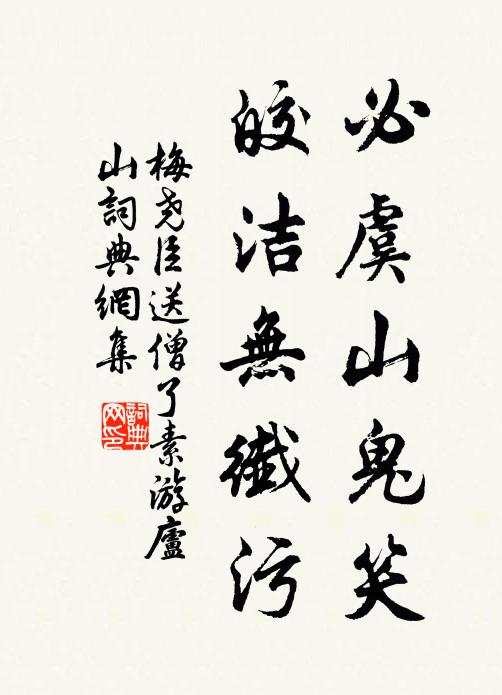 必虞山鬼笑
皎洁無纖污
梅尧臣送僧了素游廬
山詞典網集
詞典
网印